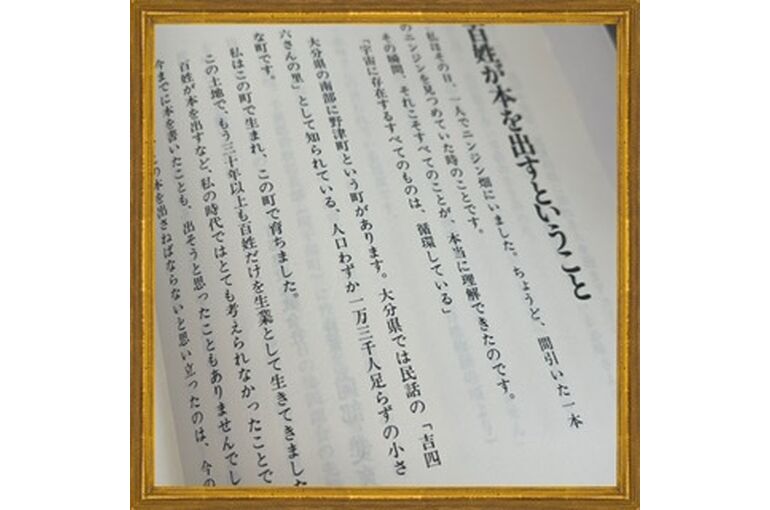 百姓が本を出すということ
私はその日、一人でニンジン畑にいました。ちょうど、間引いた一本
のニンジンを見つめていた時のことです。
その瞬間、それこそすべてのことが、本当に理解できたのです。
「宇宙に存在するすべてのものは、循環している」
大分県の南部に野津町という町があります。大分県では民話の「吉四
六さんの里」として知られている、人口わずか一万三千人足らずの小さ
な町です。
私はこの町で生まれ、この町で育ちました。
この土地で、もう三十年以上も百姓だけを生業として生きてきました
百姓が本を出すなど、私の時代ではとても考えられなかったことで
今までに本を書いたことも、出そうと思ったこともありませんでし
の本を出さねばならないと思い立ったのは、今の